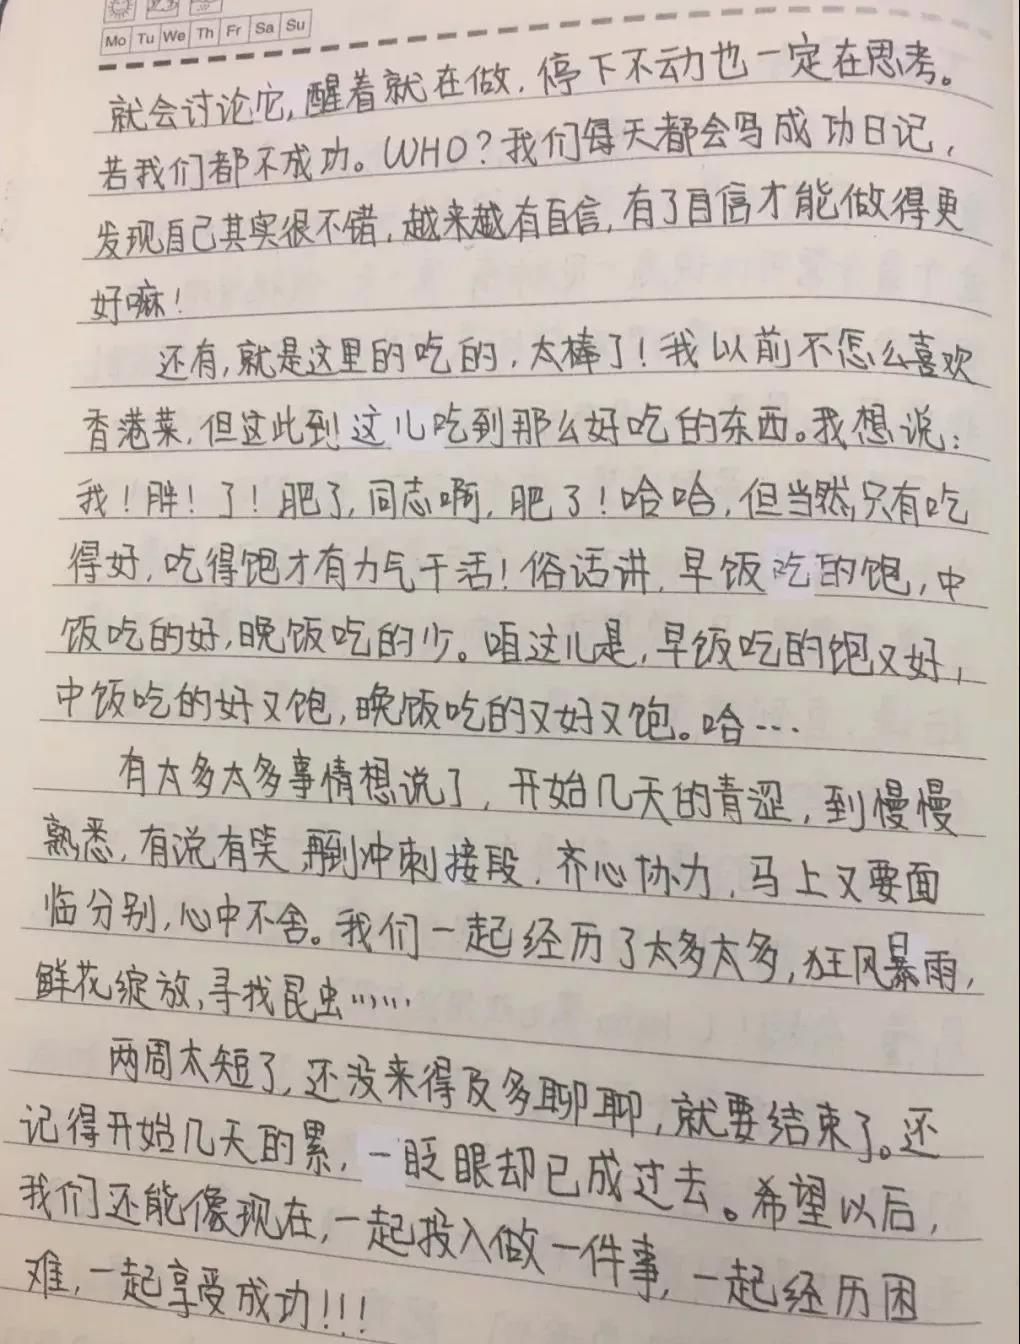 Mo Tu We Th Fr Sa Su
就会讨论它,醒着就在做,停下不动也一定在思考。
若我们都不成功。WHO?我们每天都会写成功日记,
发现自己其实很不错,越来越有自信,有了自信才能做得更
好嘛!
还有,就是这里的吃的,太棒了!我以前不怎么喜欢
香港菜,但这此到这儿吃到那么好吃的东西。我想说:
我!胖!了!肥了,同志啊,肥了!哈哈,但当然,只有吃
得好,吃得饱才有力气干活!俗话讲,早饭吃的饱,中
饭吃的好,晚饭吃的少。咱这儿是,早饭吃的饱又好,
中饭吃的好又饱,晚饭吃的又好又饱。哈…
有太多太多事情想说了,开始几天的青涩,到慢慢
熟悉,有说有笑,再到冲刺接段,齐心协力,马上又要面
临分别,心中不舍。我们一起经历了太多太多,狂风暴雨,
鲜花绽放,寻找昆虫……
两周太短了,还没来得及多聊聊,就要结束了。还
记得开始几天的累,一眨眼却已成过去。希望以后,
我们还能像现在,一起投入做一件事,一起经历困
难,一起享受成功!!!